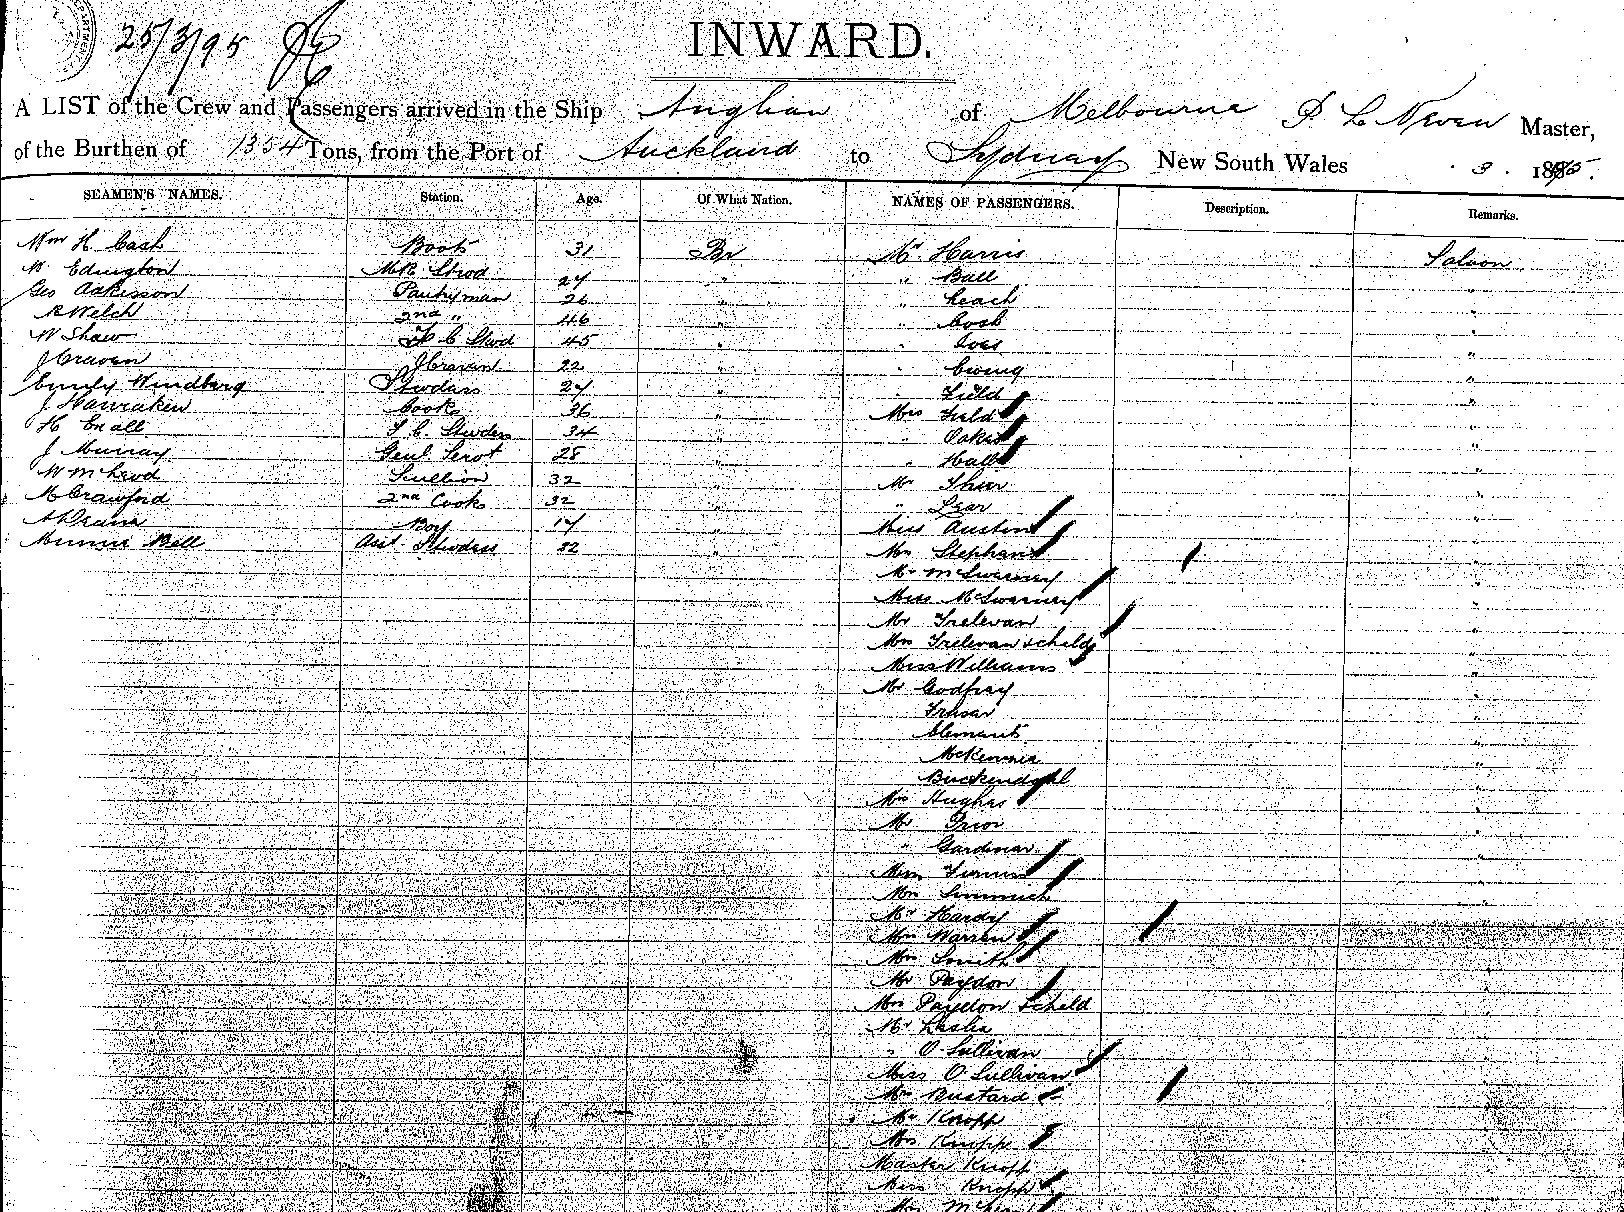 25/3/95
INWARD.
A LIST of the Crew and Passengers arrived in the Ship Anglian of Melbourne Master,
of the Burthen of 1354 Tons, from the Port of Auckland to Sydney New South Wales 3. 1895.
SEAMEN'S NAMES. Station. Age. Of What Nation. NAMES OF PASSENGERS. Description. Remarks.
Wm H. Cash Boots 31 Br Mr. Harris Saloon
Edington Stwd 24 " " Ball "
Geo Pantryman 26 " " Leach "
R Welch 2nd " 46 " " Cook "
W Shaw Stwd 45 " "
J Craven J Craven 22 " " Ewing "
Emily Windberg Stwdess 24 " Field "
J Cook 36 " Mrs Field "
H Stwdess 34 " " Oakes "
J Murray Genl Servt 28 " " Hall "
W McLeod Scullion 32 " Mr "
Crawford 2nd Cook 32 " " Lear "
Deane Boy 14 " Miss Austin "
Minnie Bell Asst Stwdess 32 " Mrs Stephens "
Mr McSweeney "
Miss McSweeney "
Mr Trelevan "
Mrs Trelevan & child "
Miss Williams "
Mr Godfrey "
Fraser "
Clements "
McKennie "
Buckendahl "
Mrs Hughes "
Mr Prior "
" Gardiner "
Miss
Mrs
Mr Hardy
Mrs Warren
Mrs Smith
Mr Paydon
Mrs Paydon & child
Mr Leslie
" O'Sullivan
Miss O'Sullivan
Mrs Bustard
Mr Knopp
Mrs Knopp
Master Knopp
Miss Knopp